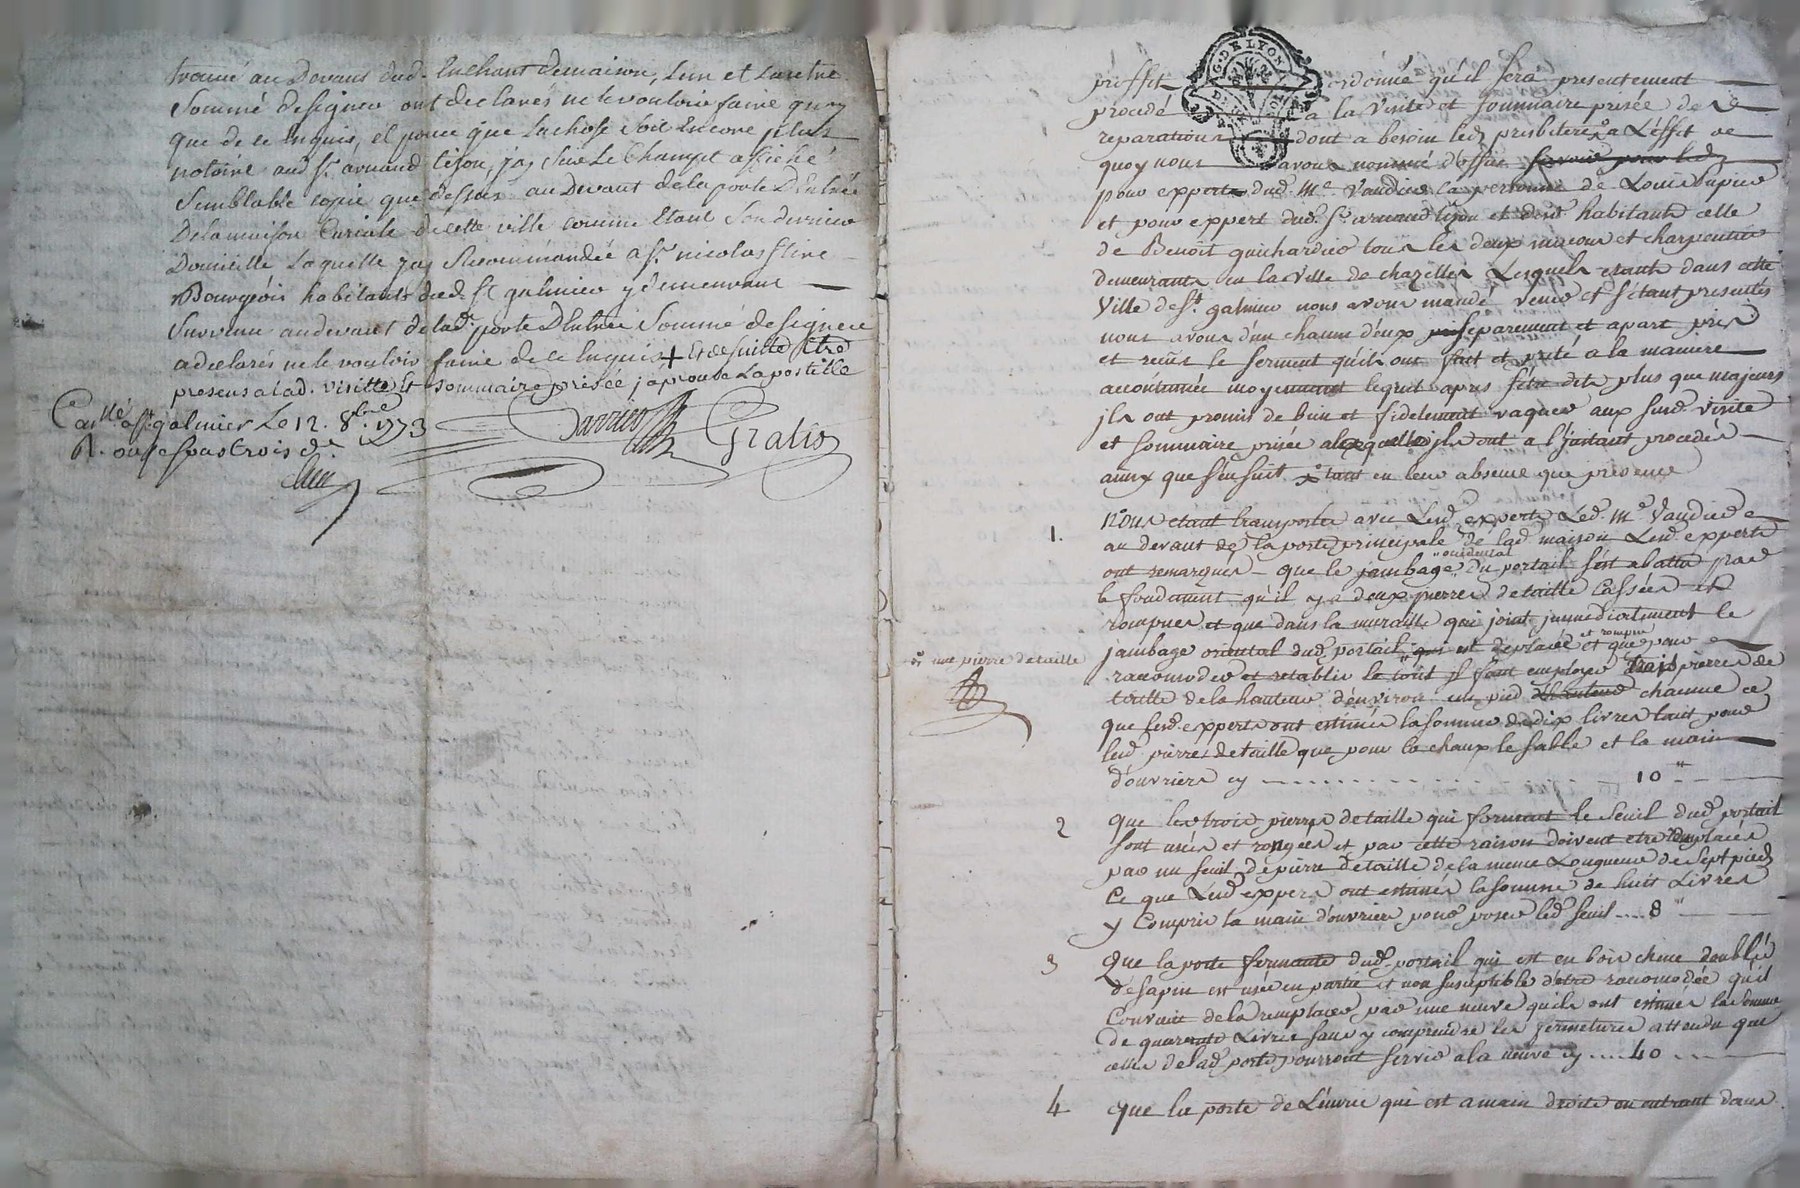 trouvé au Devant dud. Enchant demaison, Lun et Lautre
Sommé designer ont declarés ne le vouloir faire quoy
que de ce Enquis, et pource que Lachose soit Encore plus
notoire aud Sr. arnaud Lijon, jay sur Le Champt affiché
Semblable copie que dessus au Devant dela porte D'Entrée
Delamaison Curiale de cette ville comme Etant Son dernier
Domicille Laquelle jay Recommandée a Sr. nicolas
Bourgeois habitant dud. St galmier y demeurant
Survenu audevant delad. porte D'Entrée Sommé designer
adeclarés ne le vouloir faire de ce Enquis + Et desuitte Etre
presens a lad. visitte et sommaire prisée japrouve La postille
Con.llé a St. galmier Le 12. 8bre 1773
R. onze sous trois d.
Gralis
G. DE LYON
proffit ordonné qu'il sera presentement
procedé a la Visite et sommaire prisée des
reparations dont a besoin led. presbitere a L'effet de
quoy nous avons nommé d'office
pour experts dud. Me. Vaudier la personne de Louis Dupuis
et pour expert dud. Sr. arnaud Lijon et desd. habitants celle
de Benoit guichardié tous les deux macons et charpentiers
demeurants en la Ville de chazelles Lesquels etants dans cette
Ville de St. galmier nous avons mandé venir et s'etant presentés
nous avons d'un chacun d'eux separement et apart pris
et recus le serment quils ont fait et prété a la maniere
accoutumée moyennant lequel apres s'etre dits plus que majeurs
jls ont promis de bien et fidelement vaquer aux susd. visite
et sommaire prisée alaquelle jls ont a l'jnstant procedés
ainsy que s'ensuit tant en leur absence que presence
1. Nous etant transportés avec Lesd. experts Led. Me. Vaudier
au devant de la porte principale de lad. maison Lesd. experts
ont remarqués que le jambage "occidental du portail s'est abattu par
le fondament qu'il y a deux pierres detaille Cassées et
rompues et que dans la muraille qui joint jmmediatement le
jambage oriental dud. portail " qui est deplacée et rompue et que pour
" une pierre detaille
racomoder et retablir le tout il faut employer trois pierres de
taille de la hauteur d'environ un pied chacune ce
que lesd. experts ont estimés la somme de dix livres tant pour
lesd. pierres detaille que pour la chaux le sable et la main
d'ouvriers cy 10 tt
2 que les trois pierres detaille qui forment le seuil dud. portail
sont usées et rongées et par cette raison doivent etre remplacées
par un seuil de pierre detaille de la meme Longueur de sept pieds
Ce que Lesd. expers ont estimés la somme de huit Livres
y Compris la main d'ouvriers pour poser led. seuil .... 8 tt
3 Que la porte fermante dud. portail qui est en bois chene doublé
desapin est usée en partie et non susceptible d'etre racomodée qu'il
Convient de la remplacer par une neuve quils ont estimés la somme
de quarante Livres sans y comprendre les fermetures attendu que
celles delad. porte pourront servir a la neuve cy .... 40
4 que la porte de L'écurie qui est a main droite en entrant dans